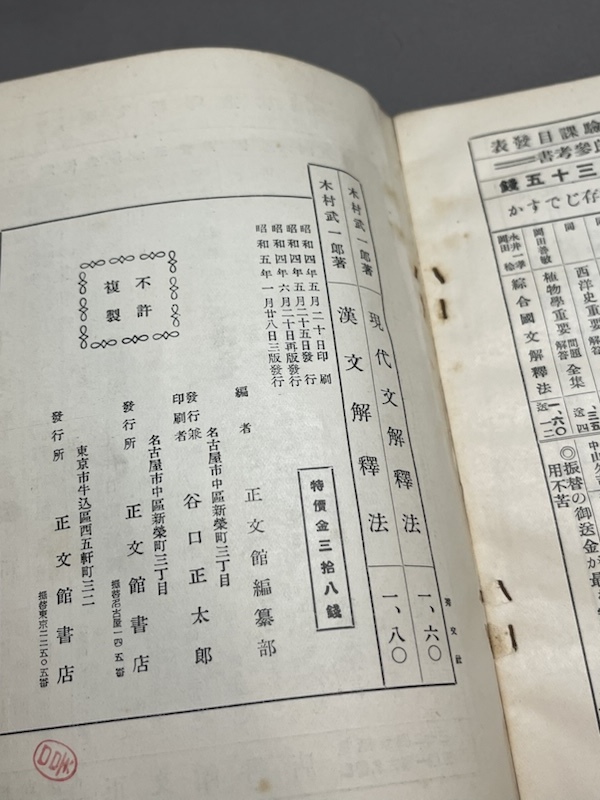 表發目課驗
書考參
錢五十三
かすでじ存
永井一孝
岡田稔
綜合國文解釋法
岡田善敏
植物學重要問題解答
西洋史重要問題解答全集
一、六〇
◎振替の御送金が最
用不苦
木村武一郎著
現代文解釋法
一、六〇
木村武一郎著
漢文解釋法
一、八〇
特價金三拾八錢
昭和四年五月二十日印刷
昭和四年五月二十五日發行
昭和四年六月二十日再版發行
昭和五年一月廿八日三版發行
不許
複製
編者 正文館編纂部
名古屋市中區新榮町三丁目
發行兼
印刷者 谷口正太郎
名古屋市中區新榮町三丁目
發行所 正文館書店
振替名古屋一四五番
東京市牛込區西五軒町三二
發行所 正文館書店
振替東京二二五〇五番
DD/K